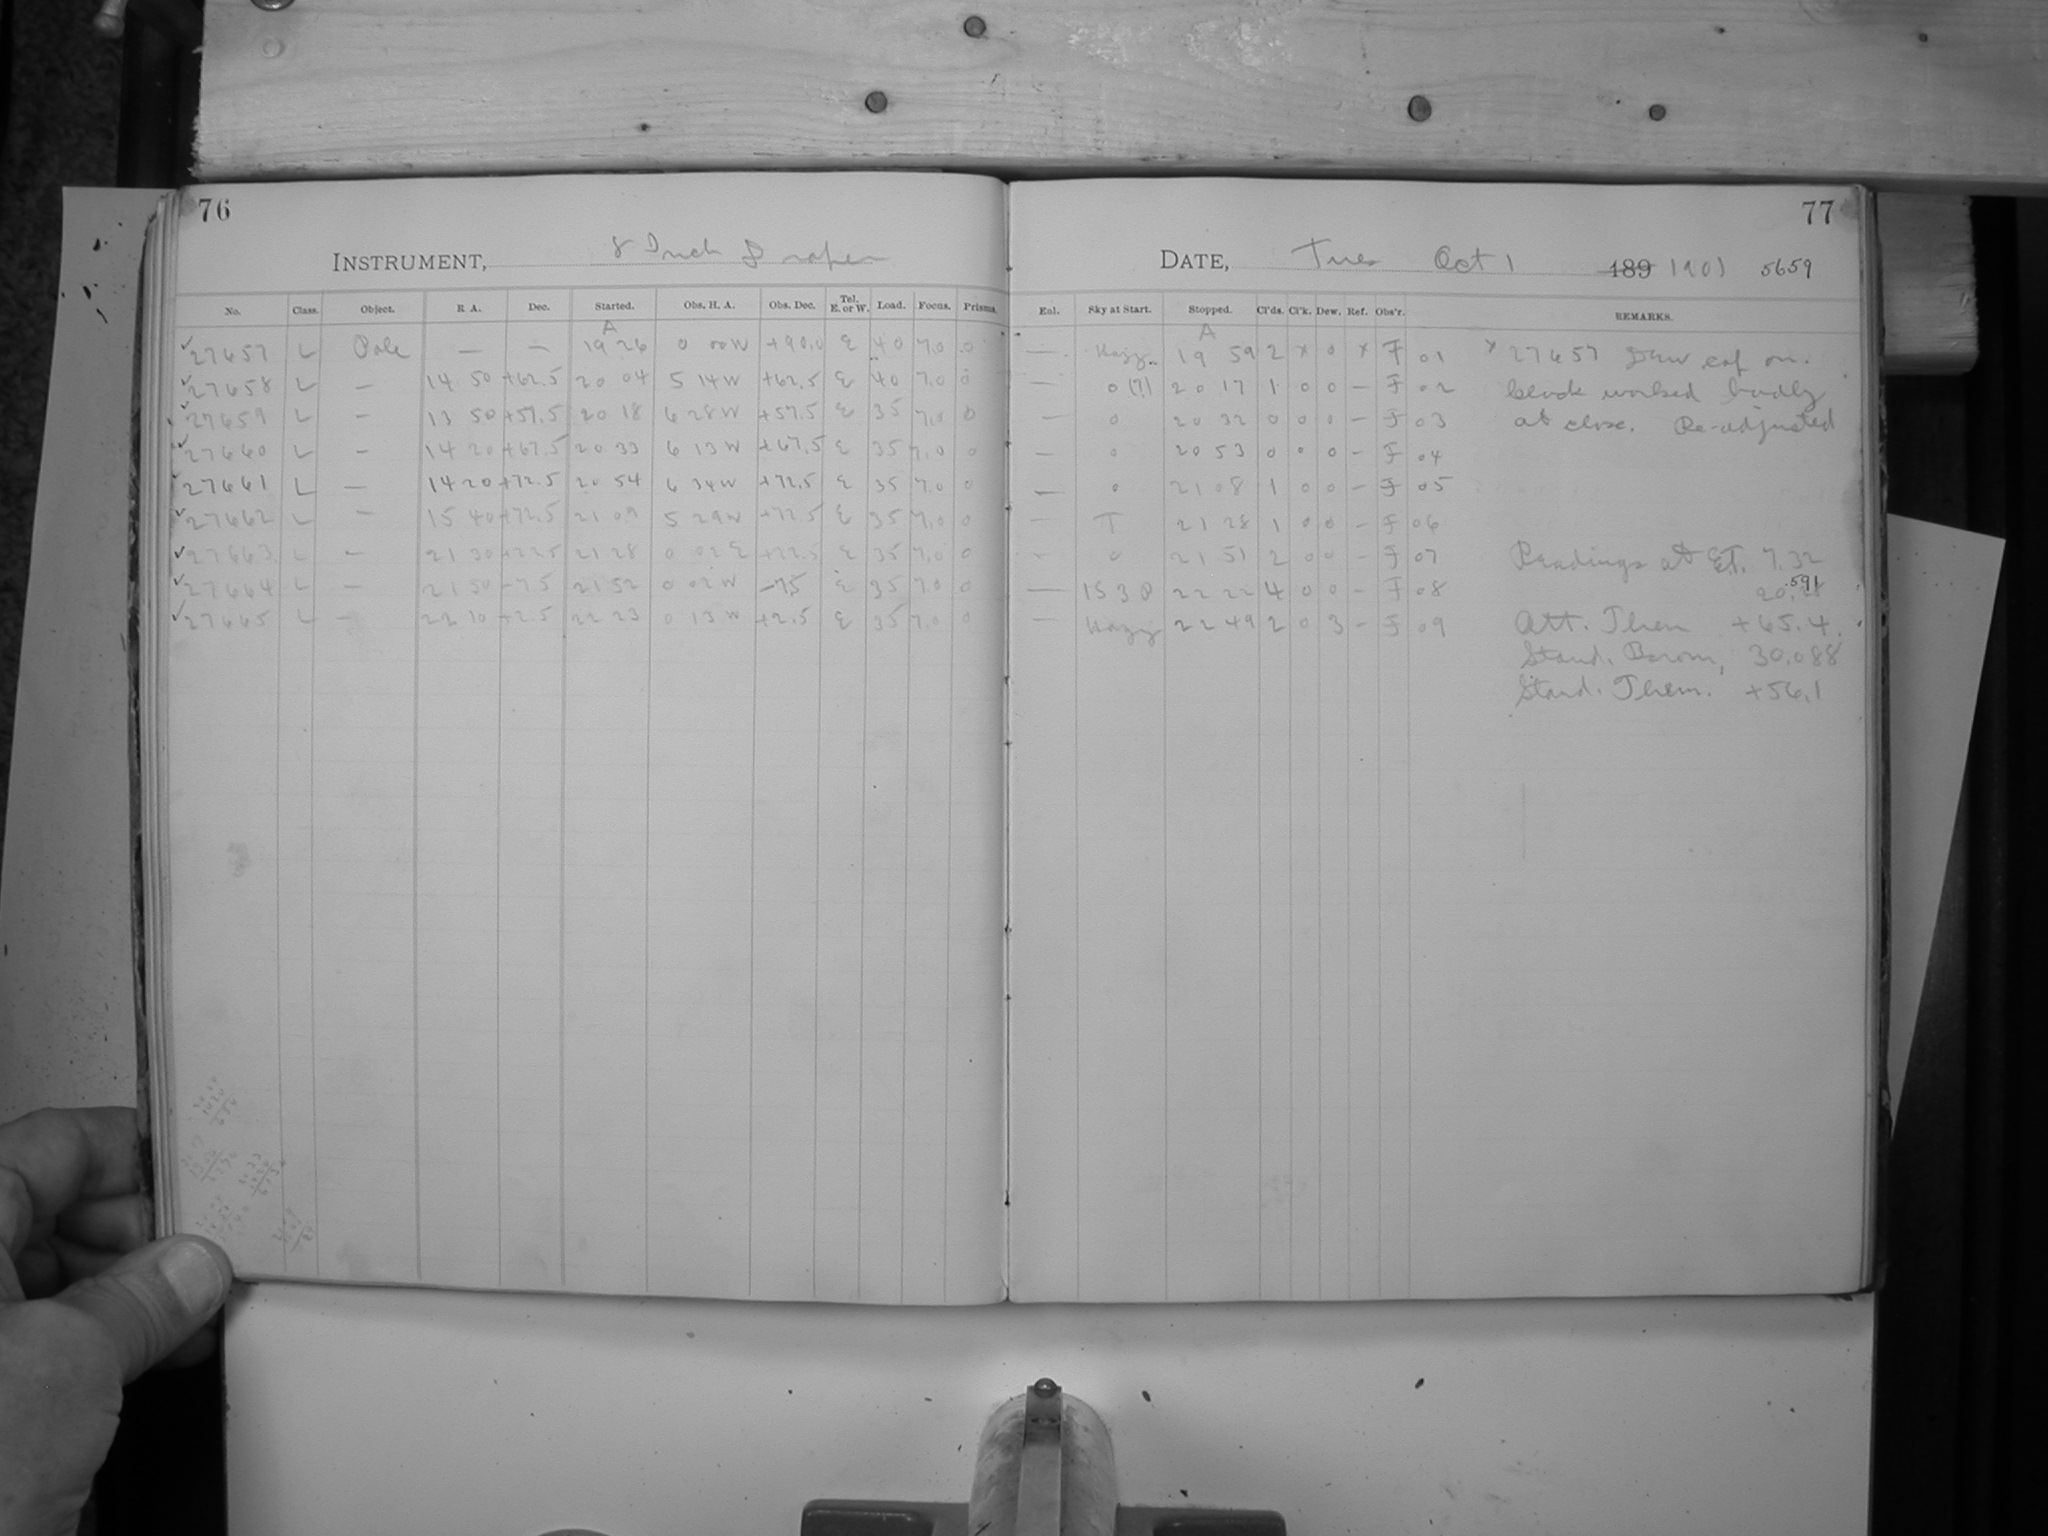 76
INSTRUMENT, 8 Inch Draper
No. Class. Object. R. A. Dec. Started. Obs. H. A. Obs. Dec. Tel. E. or W. Load. Focus. Prisms.
A
✓27657 L Pole — — 19 26 0 00W +90.0 E 40 7.0 0
✓27658 L — 14 50 +62.5 20 04 5 14W +62.5 E 40 7.0 0
✓27659 L — 13 50 +57.5 20 18 6 28W +57.5 E 35 7.0 0
✓27660 L — 14 20 +67.5 20 33 6 13W +67.5 E 35 7.0 0
✓27661 L — 14 20 +72.5 20 54 6 34W +72.5 E 35 7.0 0
✓27662 L — 15 40 +72.5 21 09 5 29W +72.5 E 35 7.0 0
✓27663 L — 21 30 +22.5 21 28 0 02E +22.5 E 35 7.0 0
✓27664 L — 21 50 -7.5 21 52 0 02W -7.5 E 35 7.0 0
✓27665 L — 22 10 +2.5 22 23 0 13W +2.5 E 35 7.0 0
77
DATE, Tues Oct 1 189 1901 5659
Eal. Sky at Start. Stopped. Cl'ds. Cl'k. Dew. Ref. Obs'r. REMARKS.
A
— Hazy 19 59 2 x 0 x F 01 x 27657 Dew cap on.
— 0(?) 20 17 1 0 0 – F 02 Clock worked badly
— 0 20 32 0 0 0 – F 03 at close. Re-adjusted
— 0 20 53 0 0 0 – F 04
— 0 21 08 1 0 0 – F 05
— T 21 28 1 0 0 – F 06
- 0 21 51 2 0 0 – F 07 Readings at E.T. 7.32
— 22 22 4 0 0 – F 08 .591
— Hazy 22 49 2 0 3 – F 09 Att. Them +65.4.
Stand. Barom, 30.088
Stand. Them. +56.1